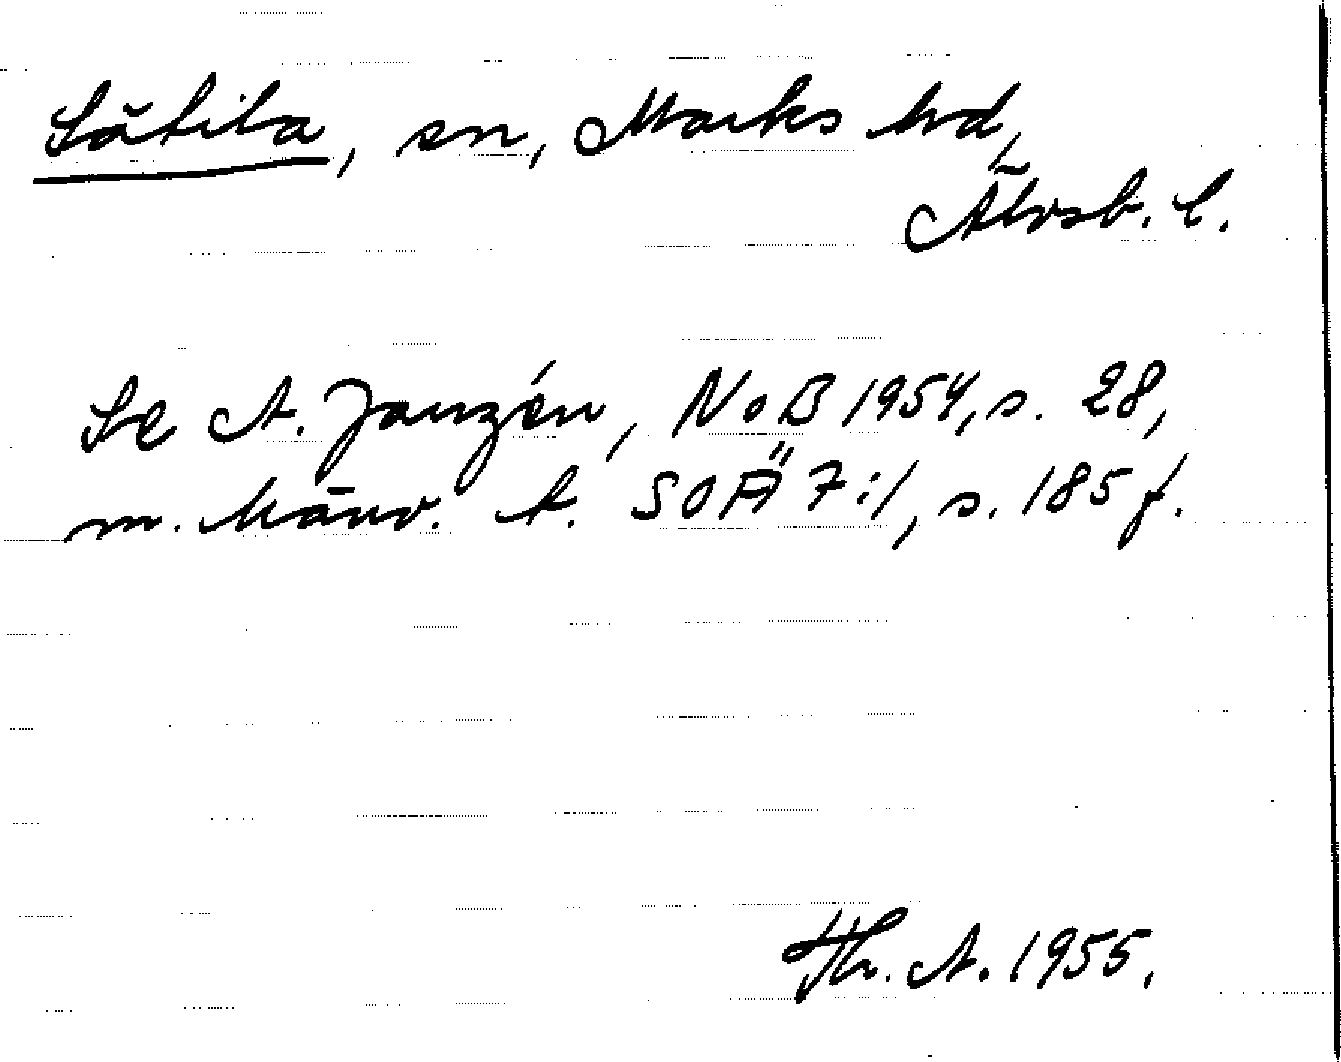 Sätila, sn, Marks hd,
Älvsb. l.
Se A. Janzén, NoB 1954, s. 28,
m. hänv. t. SOÄ 7:1, s. 185 f.
Th. A. 1955.